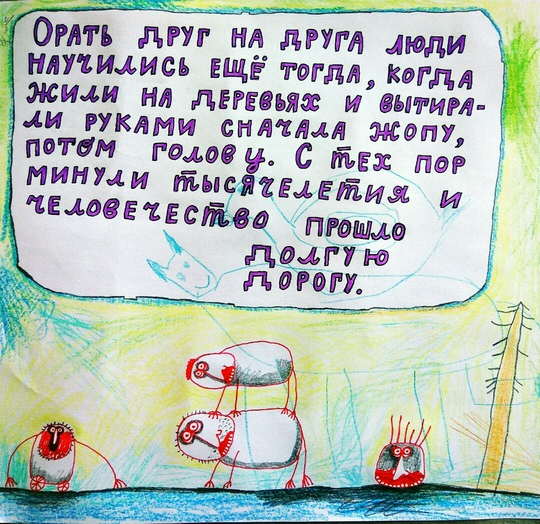 Орать друг на друга люди
научились ещё тогда, когда
жили на деревьях и вытира-
ли руками сначала жопу,
потом голову. С тех пор
минули тысячелетия и
человечество прошло
долгую
дорогу.